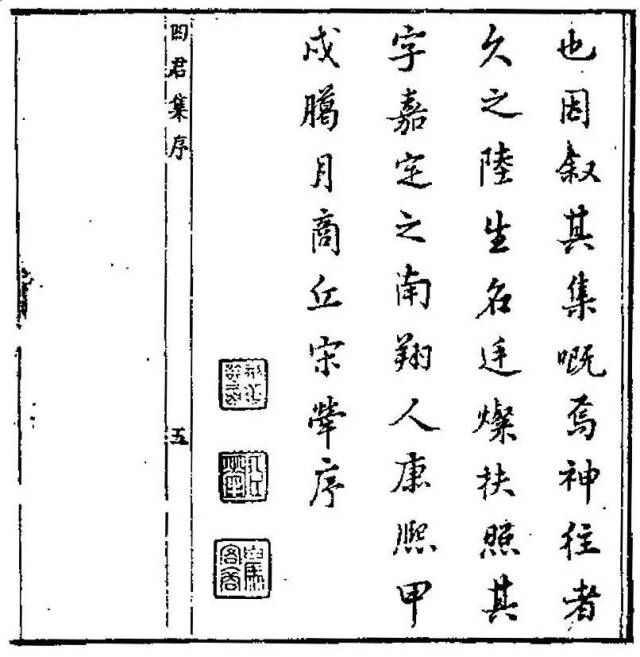 也因叙其集嘅焉神往者
久之陸生名廷燦扶照其
字嘉定之南翔人康熙甲
戌臈月商丘宋犖序
四君集序
五